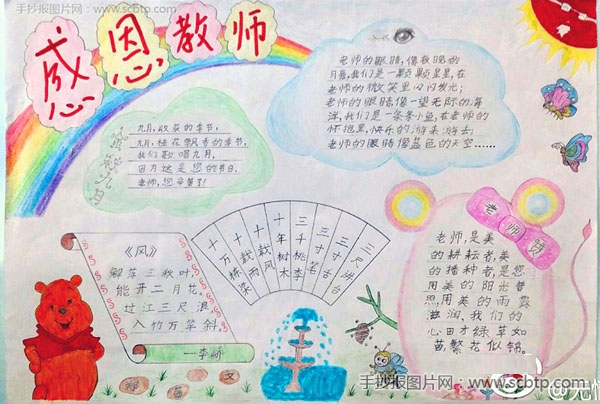 手抄报图片网
www.scbtp.com
感恩教师
老师的眼睛,像夜晚的
月亮,我们是一颗颗星星,在
老师的微笑里闪闪发光;
老师的眼睛像一望无际的海
洋,我们是一条条小鱼,在老师的
怀抱里,快乐的游来游去;
老师的眼睛像蓝色的天空……
九月,收获的季节;
九月,桂花飘香的季节;
我们歌唱九月,
因为这是您的节日,
老师,您辛苦了!
三尺讲台
三寸舌
三寸笔
三千桃李
十年树木
十载风
十载雨
十万栋梁
《风》
解落三秋叶,
能开二月花,
过江三尺浪,
入竹万竿斜。
—李峤
老师颂
老师,是美
的耕耘者,美
的播种者,是您
用美的阳光普
照,用美的雨露
滋润,我们的
心田才绿草如
茵,繁花似锦
手抄报图片网 www.scbtp.com